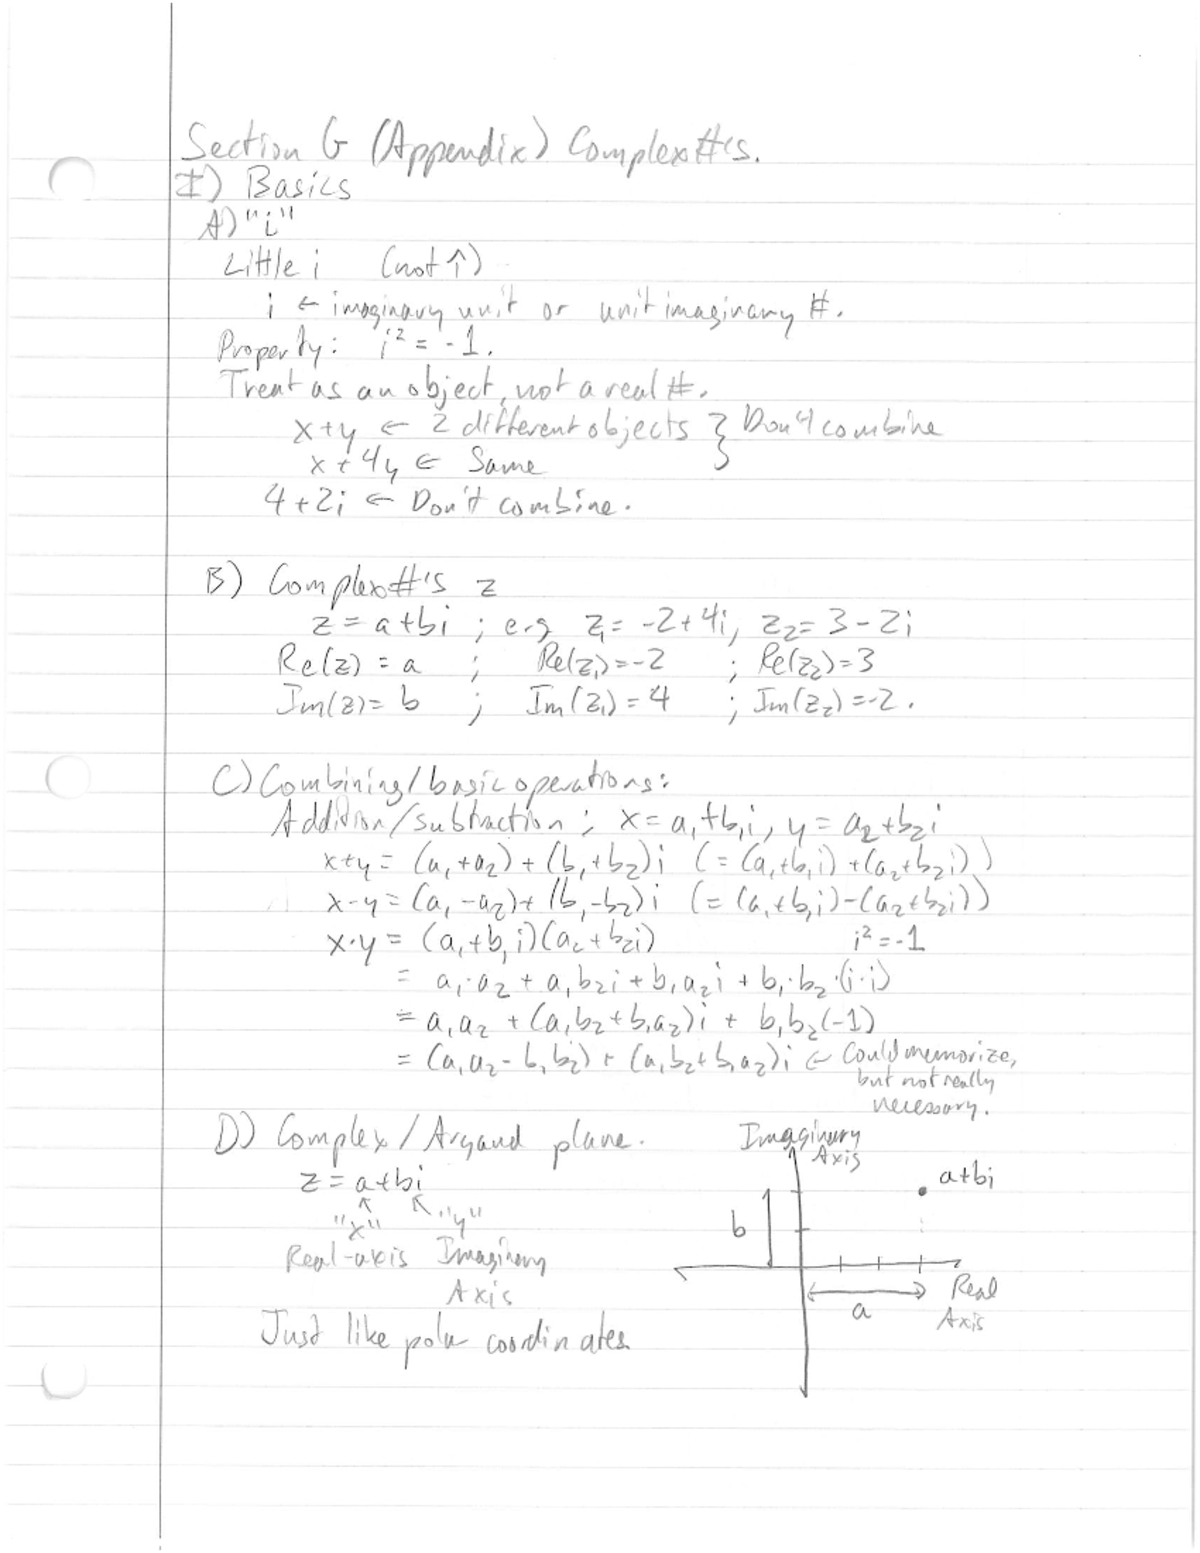 Section G (Appendix) Complex #'s.
I) Basics
A) "i"
Little i (not ↑)
i ← imaginary unit or unit imaginary #.
Property: i² = -1.
Treat as an object, not a real #.
x+y ← 2 different objects } Don't combine
x+4y ← Same
4+2i ← Don't combine.
B) Complex #'s z
z = a+bi ; e.g. z₁ = -2+4i, z₂ = 3-2i
Re(z) = a ; Re(z₁) = -2 ; Re(z₂) = 3
Im(z) = b ; Im(z₁) = 4 ; Im(z₂) = -2.
C) Combining/basic operations:
Addition/Subtraction ; x = a₁+b₁i, y = a₂+b₂i
x+y = (a₁+a₂) + (b₁+b₂)i (= (a₁+b₁i) + (a₂+b₂i))
x-y = (a₁-a₂) + (b₁-b₂)i (= (a₁+b₁i) - (a₂+b₂i))
x·y = (a₁+b₁i)(a₂+b₂i) i² = -1
= a₁·a₂ + a₁b₂i + b₁a₂i + b₁·b₂·(i·i)
= a₁a₂ + (a₁b₂+b₁a₂)i + b₁b₂(-1)
= (a₁a₂ - b₁b₂) + (a₁b₂+b₁a₂)i ← Could memorize,
but not really
necessary.
D) Complex/Argand plane.
z = a+bi
"x" "y"
Real-axis Imaginary
Axis
Just like polar coordinates
Imaginary
Axis
a+bi
b
a
Real
Axis